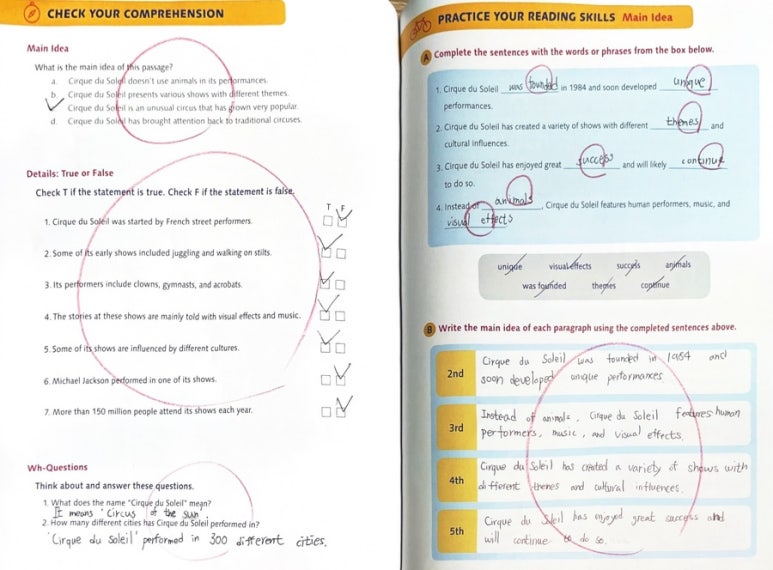 CHECK YOUR COMPREHENSION
Main Idea
What is the main idea of this passage?
a. Cirque du Soleil doesn't use animals in its performances.
b. Cirque du Soleil presents various shows with different themes.
Cirque du Soleil is an unusual circus that has grown very popular.
d. Cirque du Soleil has brought attention back to traditional circuses.
Details: True or False
Check T if the statement is true. Check F if the statement is false.
T F
1. Cirque du Soleil was started by French street performers.
2. Some of its early shows included juggling and walking on stilts.
3. Its performers include clowns, gymnasts, and acrobats.
4. The stories at these shows are mainly told with visual effects and music.
5. Some of its shows are influenced by different cultures.
6. Michael Jackson performed in one of its shows.
7. More than 150 million people attend its shows each year.
Wh-Questions
Think about and answer these questions.
1. What does the name "Cirque du Soleil" mean?
It means 'Circus of the sun'.
2. How many different cities has Cirque du Soleil performed in?
'Cirque du Soleil' performed in 300 different cities.
PRACTICE YOUR READING SKILLS Main Idea
A Complete the sentences with the words or phrases from the box below.
1. Cirque du Soleil was founded in 1984 and soon developed unique
performances.
2. Cirque du Soleil has created a variety of shows with different themes and
cultural influences.
3. Cirque du Soleil has enjoyed great success and will likely continue
to do so.
4. Instead of animals, Cirque du Soleil features human performers, music, and
visual effects
unique visual effects success animals
was founded themes continue
B Write the main idea of each paragraph using the completed sentences above.
2nd
Cirque du Soleil was founded in 1984 and
soon developed unique performances
3rd
Instead of animals, Cirque du Soleil features human
performers, music, and visual effects.
4th
Cirque du Soleil has created a variety of shows with
different themes and cultural influences.
5th
Cirque du Soleil has enjoyed great success and
will continue to do so.